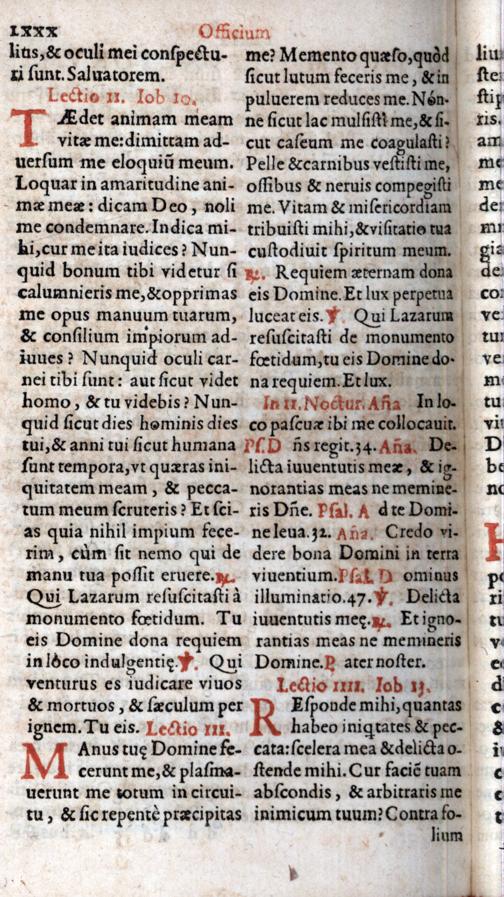 LXXX Officium
litus, & oculi mei conspectu-
ri sunt. Saluatorem.
Lectio II. Iob 10.
TÆdet animam meam
vitæ me: dimittam ad-
uersum me eloquiũ meum.
Loquar in amaritudine ani-
mæ meæ: dicam Deo, noli
me condemnare. Indica mi-
hi, cur me ita iudices? Nun-
quid bonum tibi videtur si
calumnieris me, & opprimas
me opus manuum tuarum,
& consilium impiorum ad-
iuues? Nunquid oculi car-
nei tibi sunt: aut sicut videt
homo, & tu videbis? Nun-
quid sicut dies hominis dies
tui, & anni tui sicut humana
sunt tempora, vt quæras ini-
quitatem meam, & pecca-
tum meum scruteris? Et sci-
as quia nihil impium fece-
rim, cùm sit nemo qui de
manu tua possit eruere. ℟.
Qui Lazarum resuscitasti à
monumento fœtidum. Tu
eis Domine dona requiem
in lòco indulgentię. ℣. Qui
venturus es iudicare viuos
& mortuos, & sæculum per
ignem. Tu eis. Lectio III.
MAnus tuę Domine fe-
cerunt me, & plasma-
uerunt me totum in circui-
tu, & sic repentè præcipitas
me? Memento quæso, quòd
sicut lutum feceris me, & in
puluerem reduces me. Nón-
ne sicut lac mulsisti me, & si-
cut caseum me coagulasti?
Pelle & carnibus vestisti me,
ossibus & neruis compegisti
me. Vitam & misericordiam
tribuisti mihi, & visitatio tua
custodiuit spiritum meum.
℟. Requiem æternam dona
eis Domine. Et lux perpetua
luceat eis. ℣. Qui Lazarum
resuscitasti de monumento
fœtidum, tu eis Domine do-
na requiem. Et lux.
In II. Noctur. Aña In lo-
co pascuæ ibi me collocauit.
Ps. D ñs regit. 34. Aña. De-
licta iuuentutis meæ, & ig-
norantias meas ne memine-
ris Dñe. Psal. A d te Domi-
ne leua. 32. Aña. Credo vi-
dere bona Domini in terra
viuentium. Psal. D ominus
illuminatio. 47. ℣. Delicta
iuuentutis meę. ℟. Et igno-
rantias meas ne memineris
Domine. P ater noster.
Lectio IIII. Iob 13.
REsponde mihi, quantas
habeo iniqtates & pec-
cata: scelera mea & delicta o-
stende mihi. Cur faciẽ tuam
abscondis, & arbitraris me
inimicum tuum? Contra fo-
lium